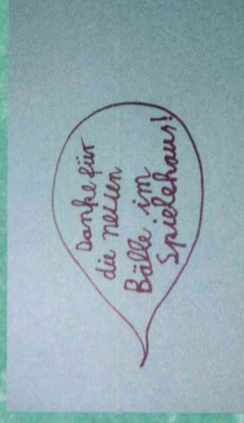 Danke für
die neuen
Bälle im
Spielehaus!